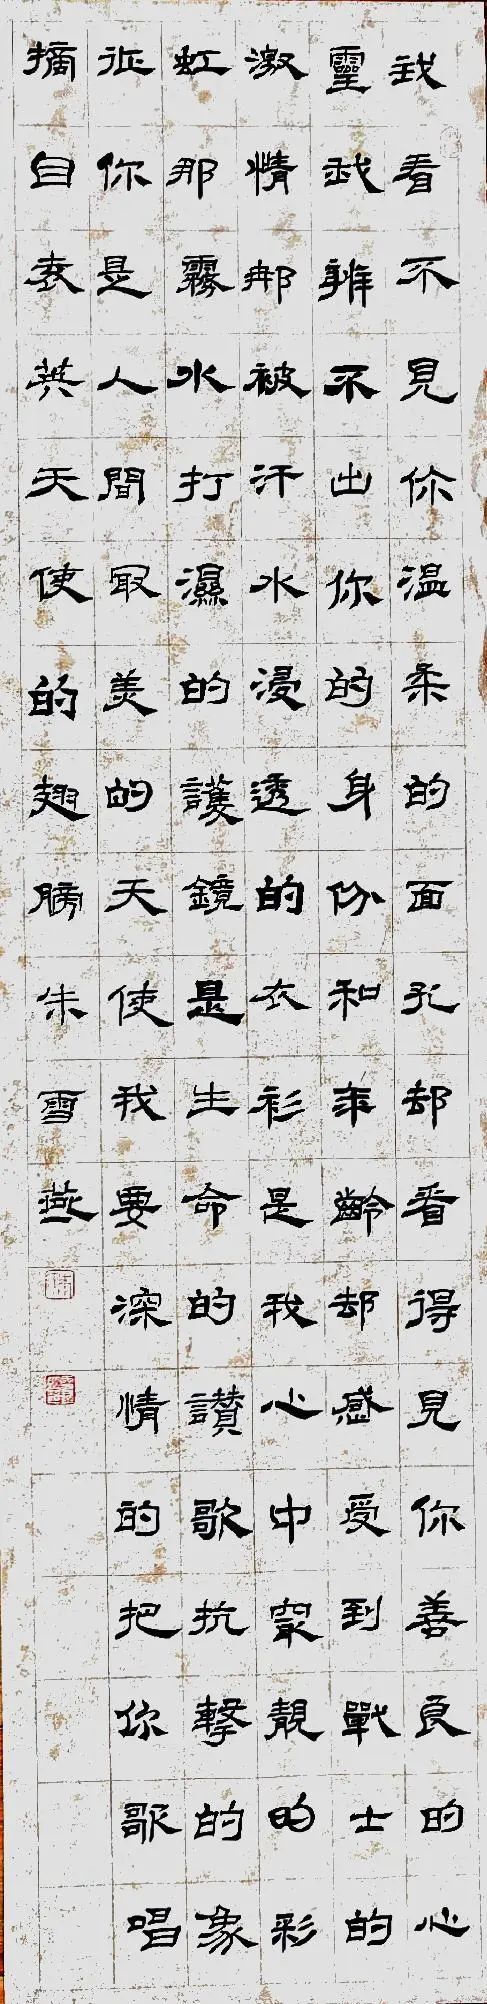 我看不見你温柔的面孔却看得見你善良的心
靈我辨不出你的身份和年齡却感受到戰士的
激情那被汗水浸透的衣衫是我心中最靚的彩
虹那霧水打濕的護鏡是生命的讚歌抗擊的象
征你是人間最美的天使我要深情的把你歌唱
摘自袁英天使的翅膀朱雪燕